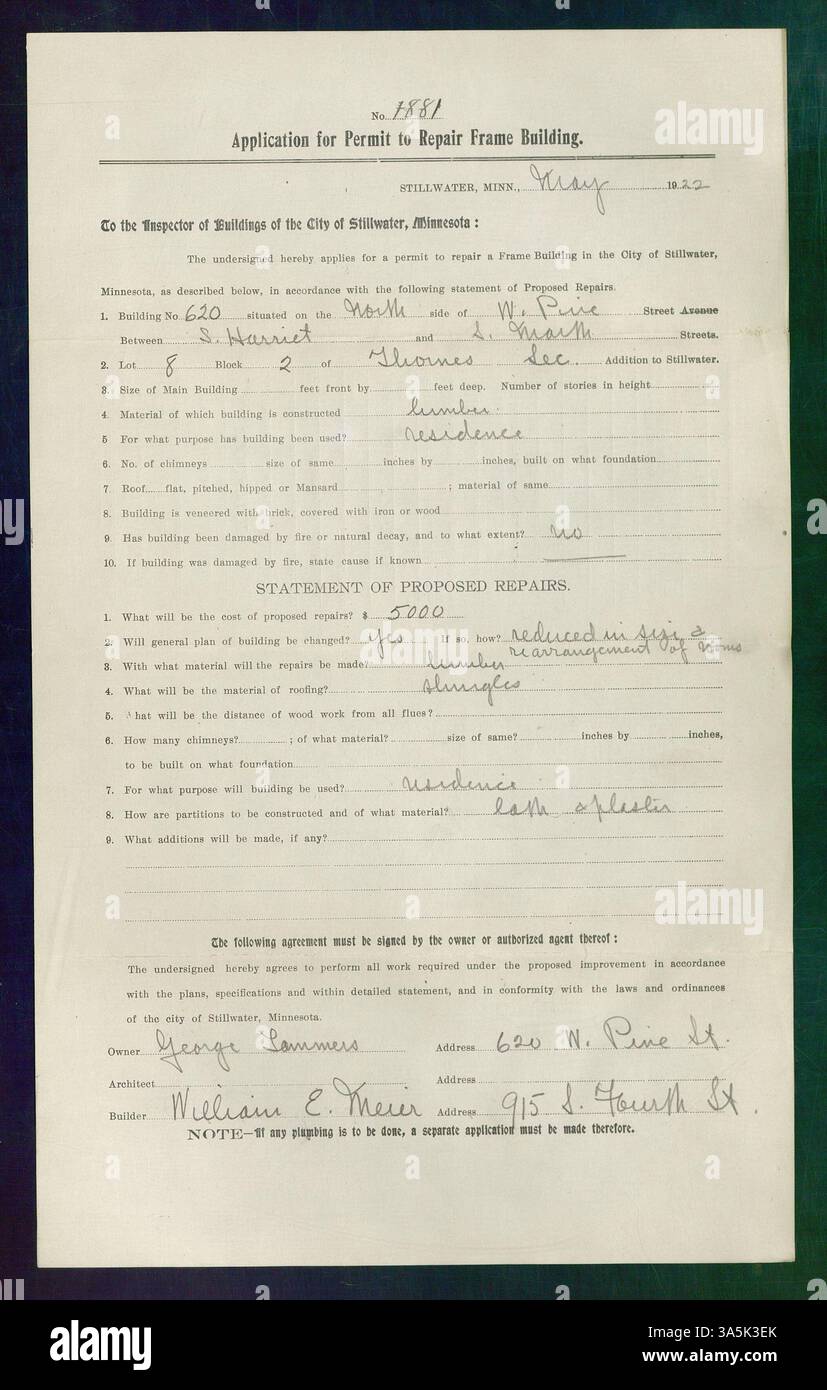 No. 1881
Application for Permit to Repair Frame Building.
STILLWATER, MINN., May 1922
To the Inspector of Buildings of the City of Stillwater, Minnesota:
The undersigned hereby applies for a permit to repair a Frame Building in the City of Stillwater,
Minnesota, as described below, in accordance with the following statement of Proposed Repairs.
1. Building No 620 situated on the North side of W. Pine Street Avenue
Between S. Harriet and S. Martha Streets.
2. Lot 8 Block 2 of Thornes Sec. Addition to Stillwater.
3. Size of Main Building feet front by feet deep. Number of stories in height
4. Material of which building is constructed lumber.
5 For what purpose has building been used? residence
6. No. of chimneys size of same inches by inches, built on what foundation
7. Roof flat, pitched, hipped or Mansard ; material of same
8. Building is veneered with brick, covered with iron or wood
9. Has building been damaged by fire or natural decay, and to what extent? no
10. If building was damaged by fire, state cause if known
STATEMENT OF PROPOSED REPAIRS.
1. What will be the cost of proposed repairs? $ 5000
2. Will general plan of building be changed? yes If so, how? reduced in size &
rearrangement of rooms
3. With what material will the repairs be made? lumber
4. What will be the material of roofing? shingles
5. hat will be the distance of wood work from all flues?
6. How many chimneys? ; of what material? size of same? inches by inches,
to be built on what foundation
7. For what purpose will building be used? residence
8. How are partitions to be constructed and of what material? lath & plaster
9. What additions will be made, if any?
The following agreement must be signed by the owner or authorized agent thereof:
The undersigned hereby agrees to perform all work required under the proposed improvement in accordance
with the plans, specifications and within detailed statement, and in conformity with the laws and ordinances
of the city of Stillwater, Minnesota.
Owner George Sommers Address 620 W. Pine St.
Architect Address
Builder William E. Meier Address 915 S. Fourth St.
NOTE—If any plumbing is to be done, a separate application must be made therefore.
alamy
Image ID: 3A5K3EK
www.alamy.com